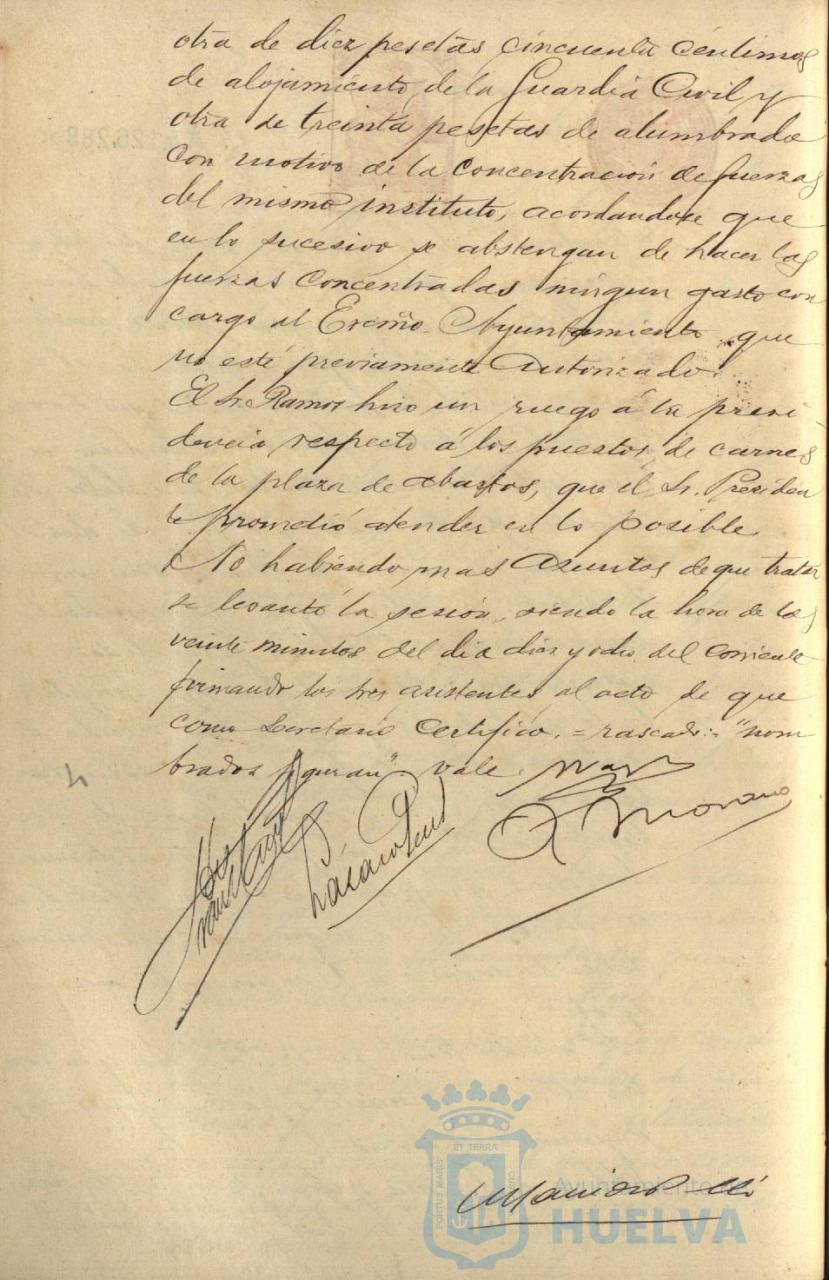 otra de diez pesetas cincuenta céntimos
de alojamiento de la Guardia Civil y
otra de treinta pesetas de alumbrado
con motivo de la concentración de fuerzas
del mismo instituto, acordandose que
en lo sucesivo se abstengan de hacer las
fuerzas concentradas ningun gasto con
cargo al Excmo. Ayuntamiento que
no esté previamente autorizado.
El Sr. Ramos hizo un ruego á la presi-
dencia respecto á los puestos de carnes
de la plaza de abastos, que el Sr. Presiden
te promedió atender en lo posible.
No habiendo mas asuntos de que tratar
se levantó la sesión, siendo la hora de las
veinte minutos del dia diez y ocho del corriente
firmando los tres asistentes al acto de que
como Secretario certifico. = rascado: "nom
brados figuran" vale.
Moreno
26,288
ET TERRAE
PORTUS MARIS
CUSTODIO
Ayuntamiento de
HUELVA